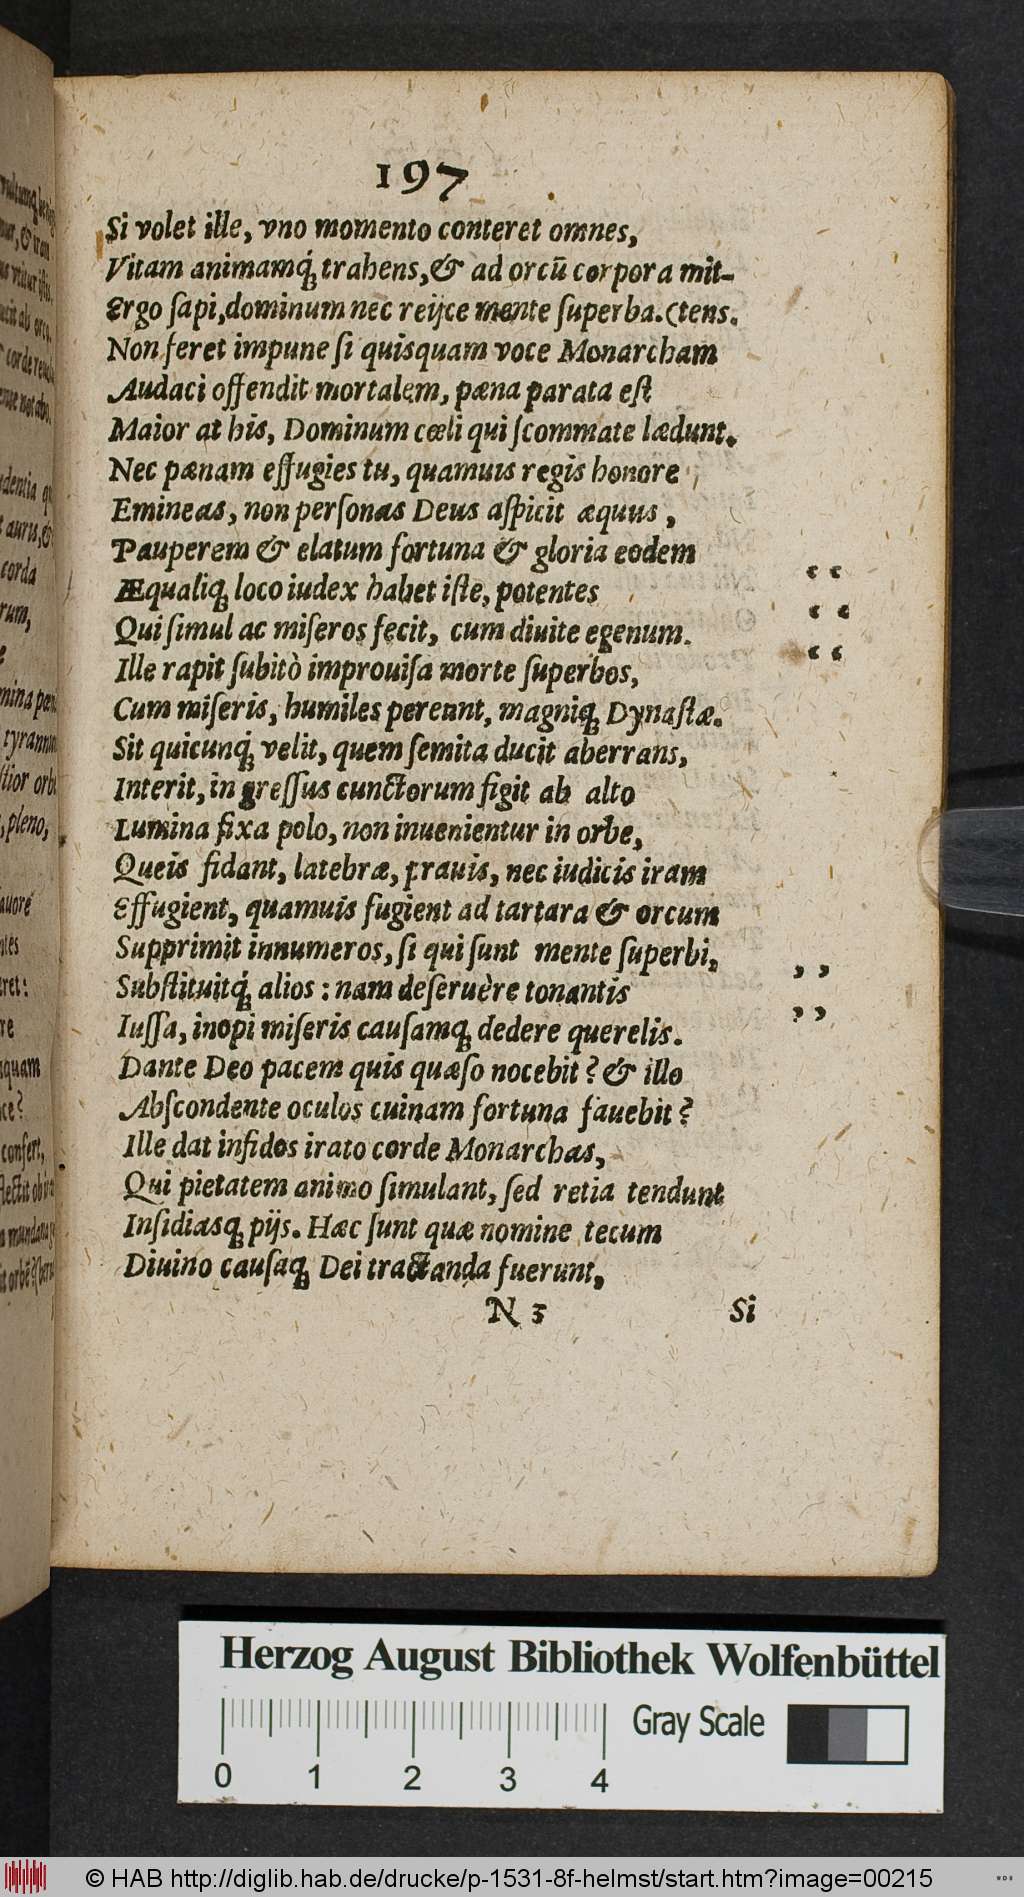 197
Si volet ille, vno momento conteret omnes,
Vitam animamq́; trahens, & ad orcū corpora mit-
Ergo sapi, dominum nec reijce mente superba. (tens.
Non feret impune si quisquam voce Monarcham
Audaci offendit mortalem, pæna parata est
Maior at his, Dominum cœli qui scommate lædunt.
Nec pænam effugies tu, quamuis regis honore
Emineas, non personas Deus aspicit æquus,
Pauperem & elatum fortuna & gloria eodem
Æqualiq; loco iudex habet iste, potentes “
Qui simul ac miseros fecit, cum diuite egenum. “
Ille rapit subitò improuisa morte superbos, “
Cum miseris, humiles pereunt, magniq; Dynastæ.
Sit quicunq́; velit, quem semita ducit aberrans,
Interit, in gressus cunctorum figit ab alto
Lumina fixa polo, non inuenientur in orbe,
Queis fidant, latebræ, prauis, nec iudicis iram
Effugient, quamuis fugient ad tartara & orcum
Supprimit innumeros, si qui sunt mente superbi, ,,
Substituitq́; alios : nam deseruère tonantis
Iussa, inopi miseris causamq; dedere querelis. ,,
Dante Deo pacem quis quæso nocebit? & illo
Abscondente oculos cuinam fortuna fauebit?
Ille dat infidos irato corde Monarchas,
Qui pietatem animo simulant, sed retia tendunt
Insidiasq; pijs. Hæc sunt quæ nomine tecum
Diuino causaq; Dei tractanda fuerunt,
N 3 Si
Herzog August Bibliothek Wolfenbüttel
Gray Scale
0 1 2 3 4
© HAB http://diglib.hab.de/drucke/p-1531-8f-helmst/start.htm?image=00215